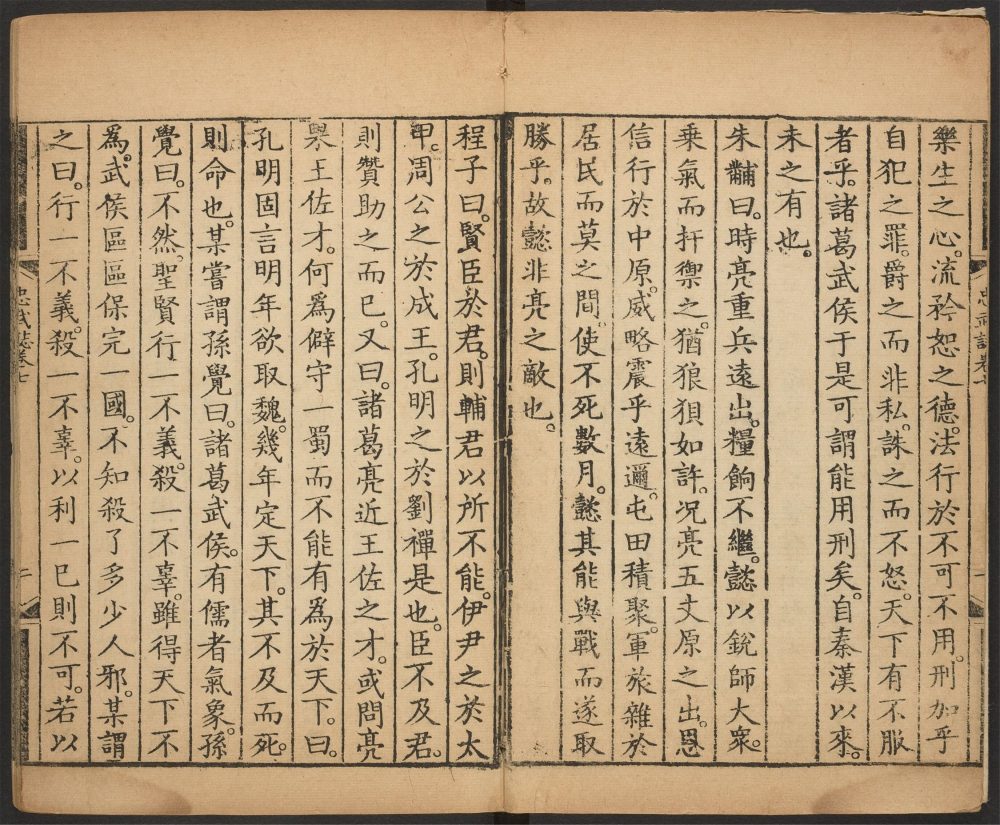 樂生之心。流矜恕之德。法行於不可不用。刑加乎
自犯之罪。爵之而非私。誅之而不怒。天下有不服
者乎。諸葛武侯于是可謂能用刑矣。自秦漢以來。
未之有也。
朱黼曰。時亮重兵遠出。糧餉不繼。懿以銳師大衆。
乘氣而扞禦之。猶狼狽如許。况亮五丈原之出。恩
信行於中原。威略震乎遠邇。屯田積聚。軍旅雜於
居民而莫之間。使不死數月。懿其能與戰而遂取
勝乎。故懿非亮之敵也。
程子曰。賢臣於君。則輔君以所不能。伊尹之於太
甲。周公之於成王。孔明之於劉禪是也。臣不及君。
則贊助之而已。又曰。諸葛亮近王佐之才。或問亮
果王佐才。何爲僻守一蜀而不能有爲於天下。曰。
孔明固言明年欲取魏。幾年定天下。其不及而死。
則命也。某嘗謂孫覺曰。諸葛武侯。有儒者氣象。孫
覺曰。不然。聖賢行一不義。殺一不辜。雖得天下不
爲。武侯區區保完一國。不知殺了多少人邪。某謂
之曰。行一不義。殺一不辜。以利一已則不可。若以
忠武誌卷七
二